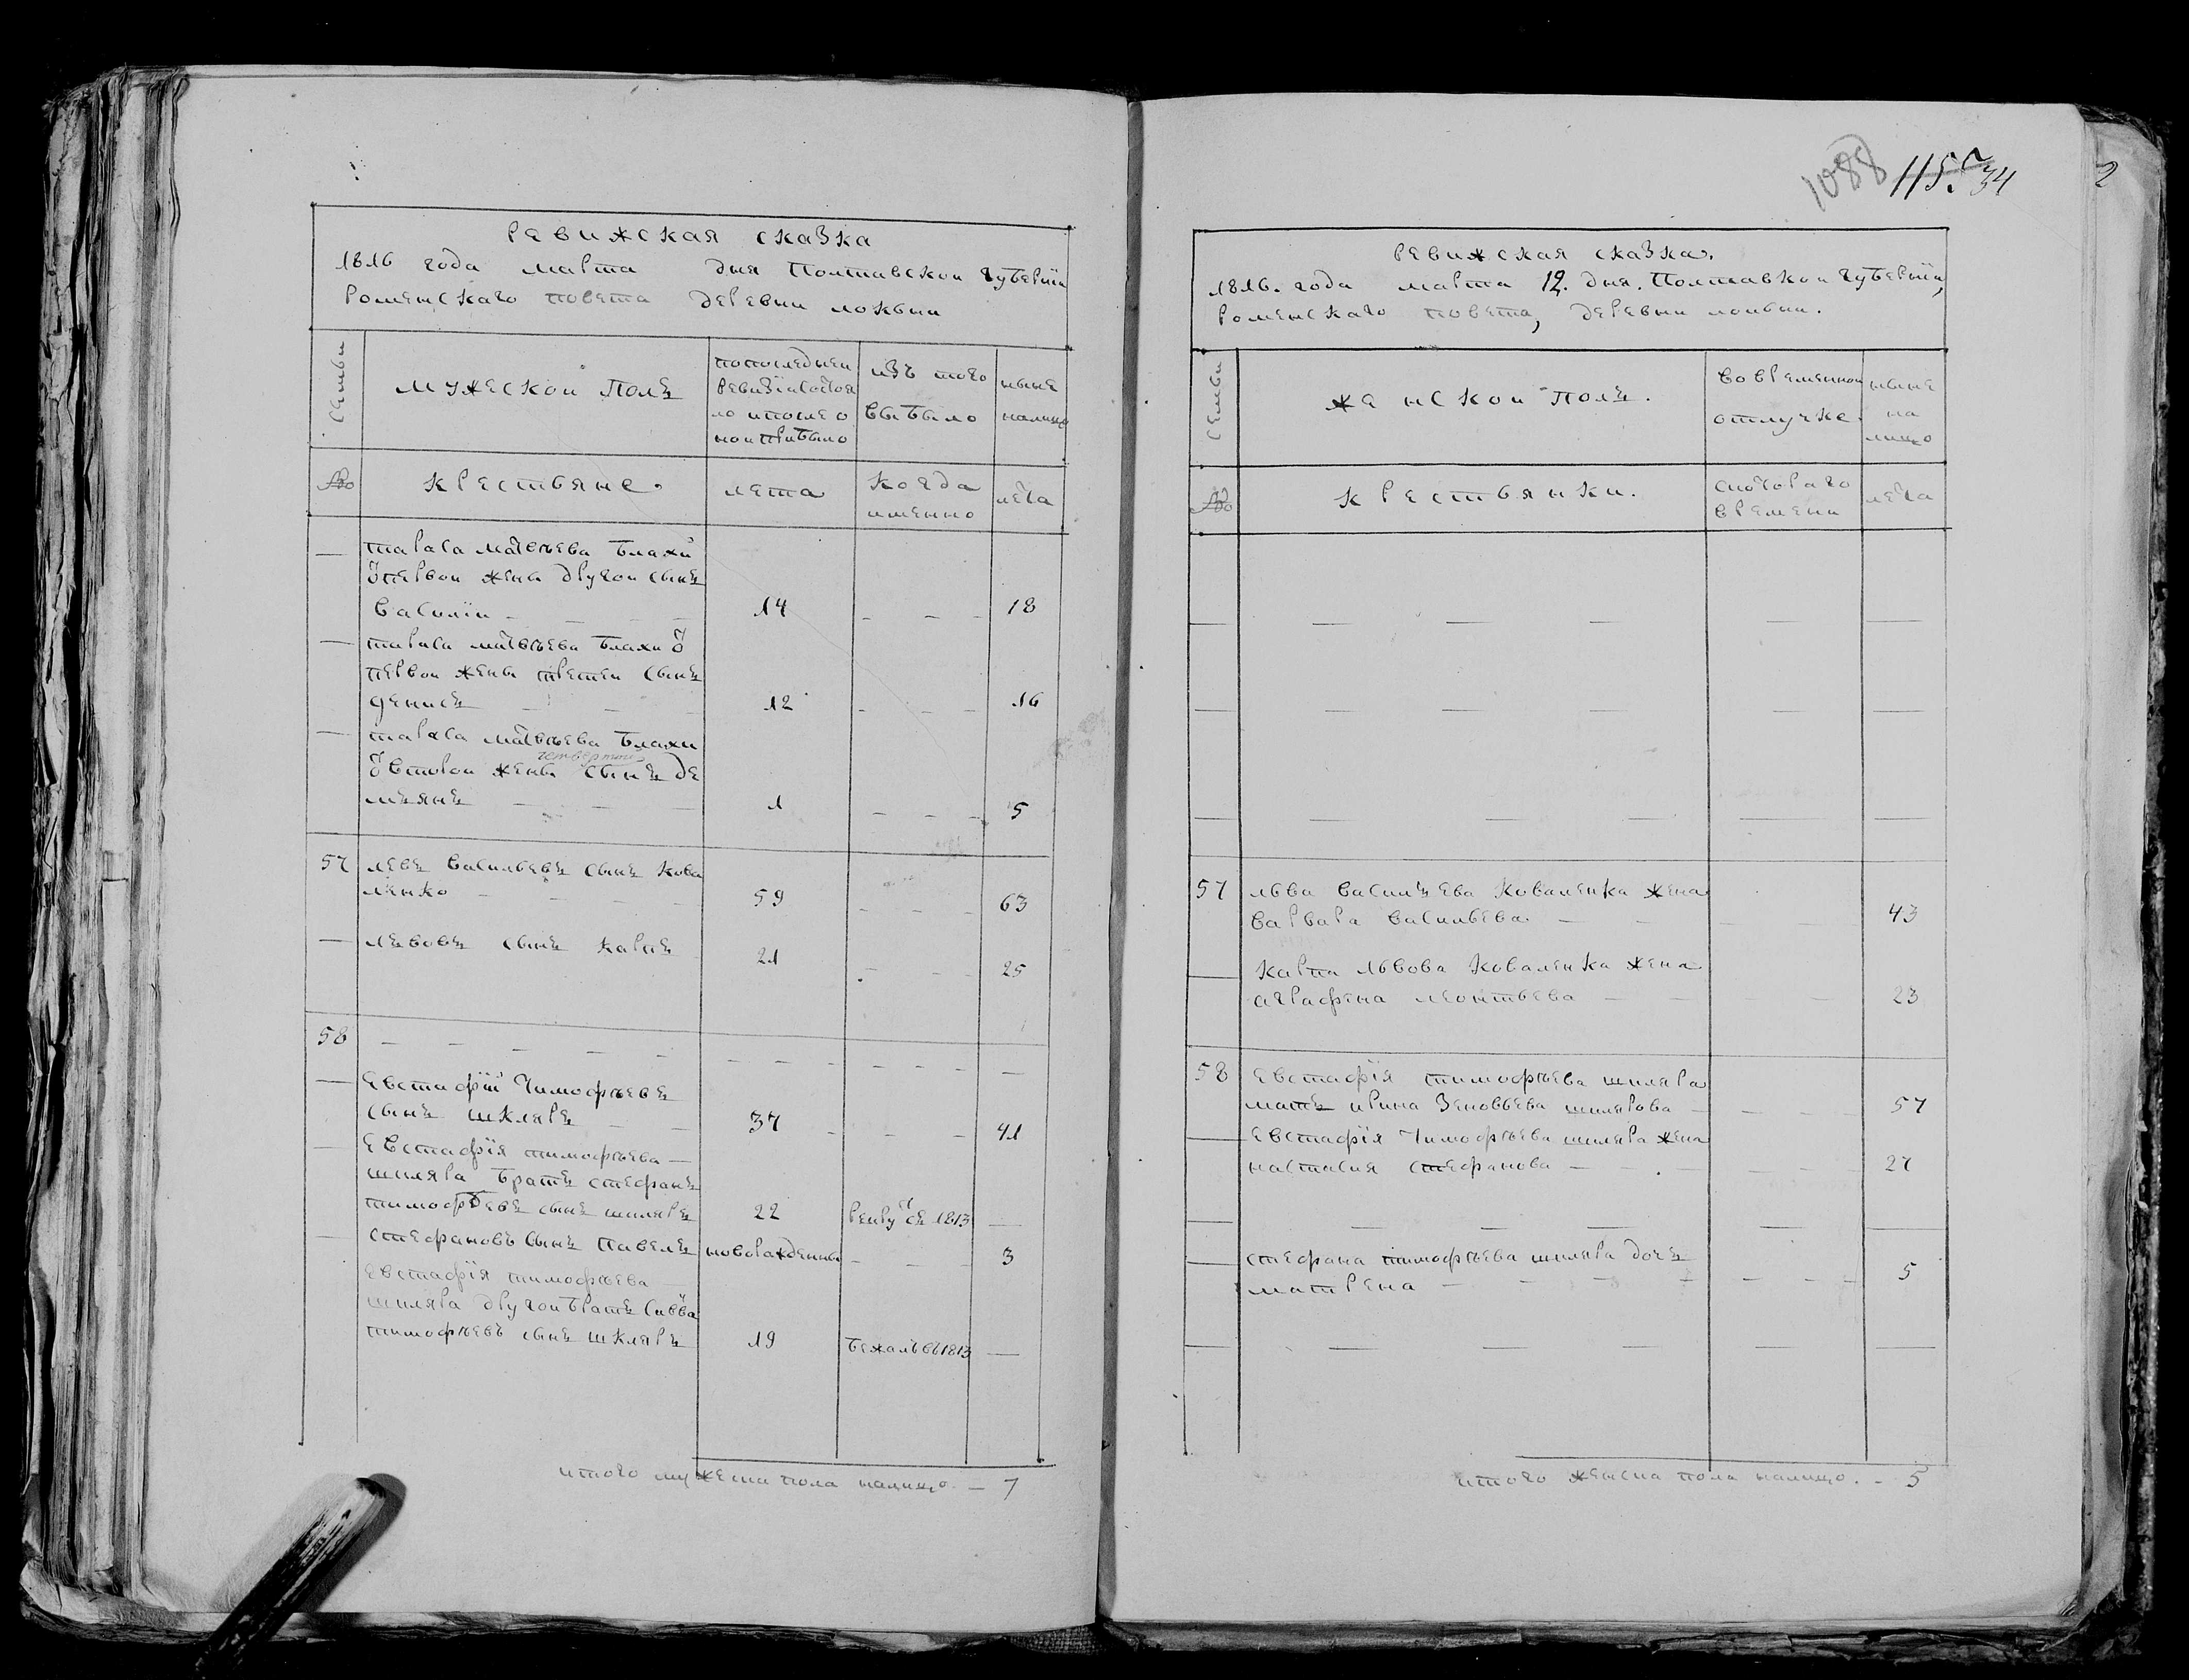 1088 115. 34
2
Ревижская сказка
1816 года марта дня Полтавской губернїи
Роменскаго повета деревни локвии
Семьи
мужеской полъ
попоследней
ревизїи состоя
ло и после о
ной прибыло
изъ того
выбыло
ныне
налицо
№
крестьяне.
лета
когда
именно
лета
— тараса матвѣева блахи
ѿ первой жены другой сынъ
василїй - 14 - - - 18
— тараса матвѣева блахи ѿ
первой жены третей сынъ
денисъ 12 - - - 16
— тараса матвѣева блахи
четвертой
ѿ второй жены сынъ де
мъянъ 1 - - - 5
57 левъ васильевъ сынъ кова
ленко 59 - - - 63
— лвовъ сынъ карпъ 21 - - - 25
58 - - - - - - - - - - - —
— Евстафїй тимофѣевъ
сынъ шкляръ 37 - - - 41
— Евстафїя тимофѣева —
шкляра братъ стефанъ
тимофѣевъ сынъ шкляръ 22 рекру въ 1813 —
— стефановъ сынъ павелъ новорожденны - - - 3
Евстафїя тимофѣева —
шкляра другой братъ савва
тимофѣевъ сынъ шкляръ 19 бежалъ въ 1813 —
итого мужеска пола налицо. — 7
Ревижская сказка.
1816. года марта 12. дня. Полтавкой губернїи,
Роменскаго повета, деревни локвии.
Семьи
женской полъ.
во временной
отлучке.
ныне
на
лицо
№
крестьянки.
с котораго
времени
лета
57 льва василъева коваленка жена
варвара васильева. — 43
— карпа львова коваленка жена
аграфена леонтьева — 23
58 Евстафїя тимофѣева шкляра
матъ ирина зеновьева шклярова — 57
— Евстафїя тимофѣева шкляра жена
настасия стефанова — 27
— стефана тимофѣева шкляра дочъ
матрена — 5
итого женска пола налицо. - 5